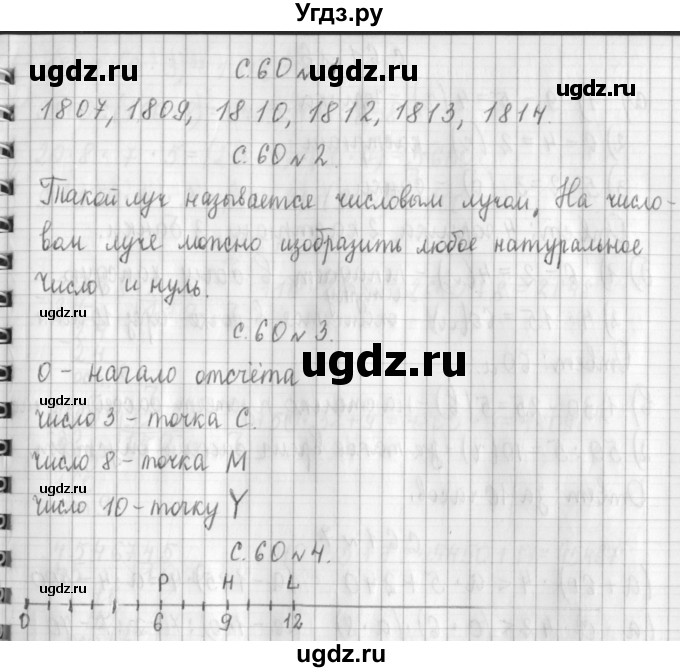 Угдз.ру
с.60 №
1807, 1809, 1810, 1812, 1813, 1814.
с.60 №2.
Такой луч называется числовым лучом. На число-
вом луче можно изобразить любое натуральное
число и нуль.
с.60 №3.
0 - начало отсчёта
число 3 - точка C.
число 8 - точка M
число 10 - точку Y
с.60 №4.
P H L
0 6 9 12
ugdz.ru
ugdz.ru
ugdz.ru
ugdz.ru
ugdz.ru
ugdz.ru
ugdz.ru
ugdz.ru
ugdz.ru
ugdz.ru
ugdz.ru